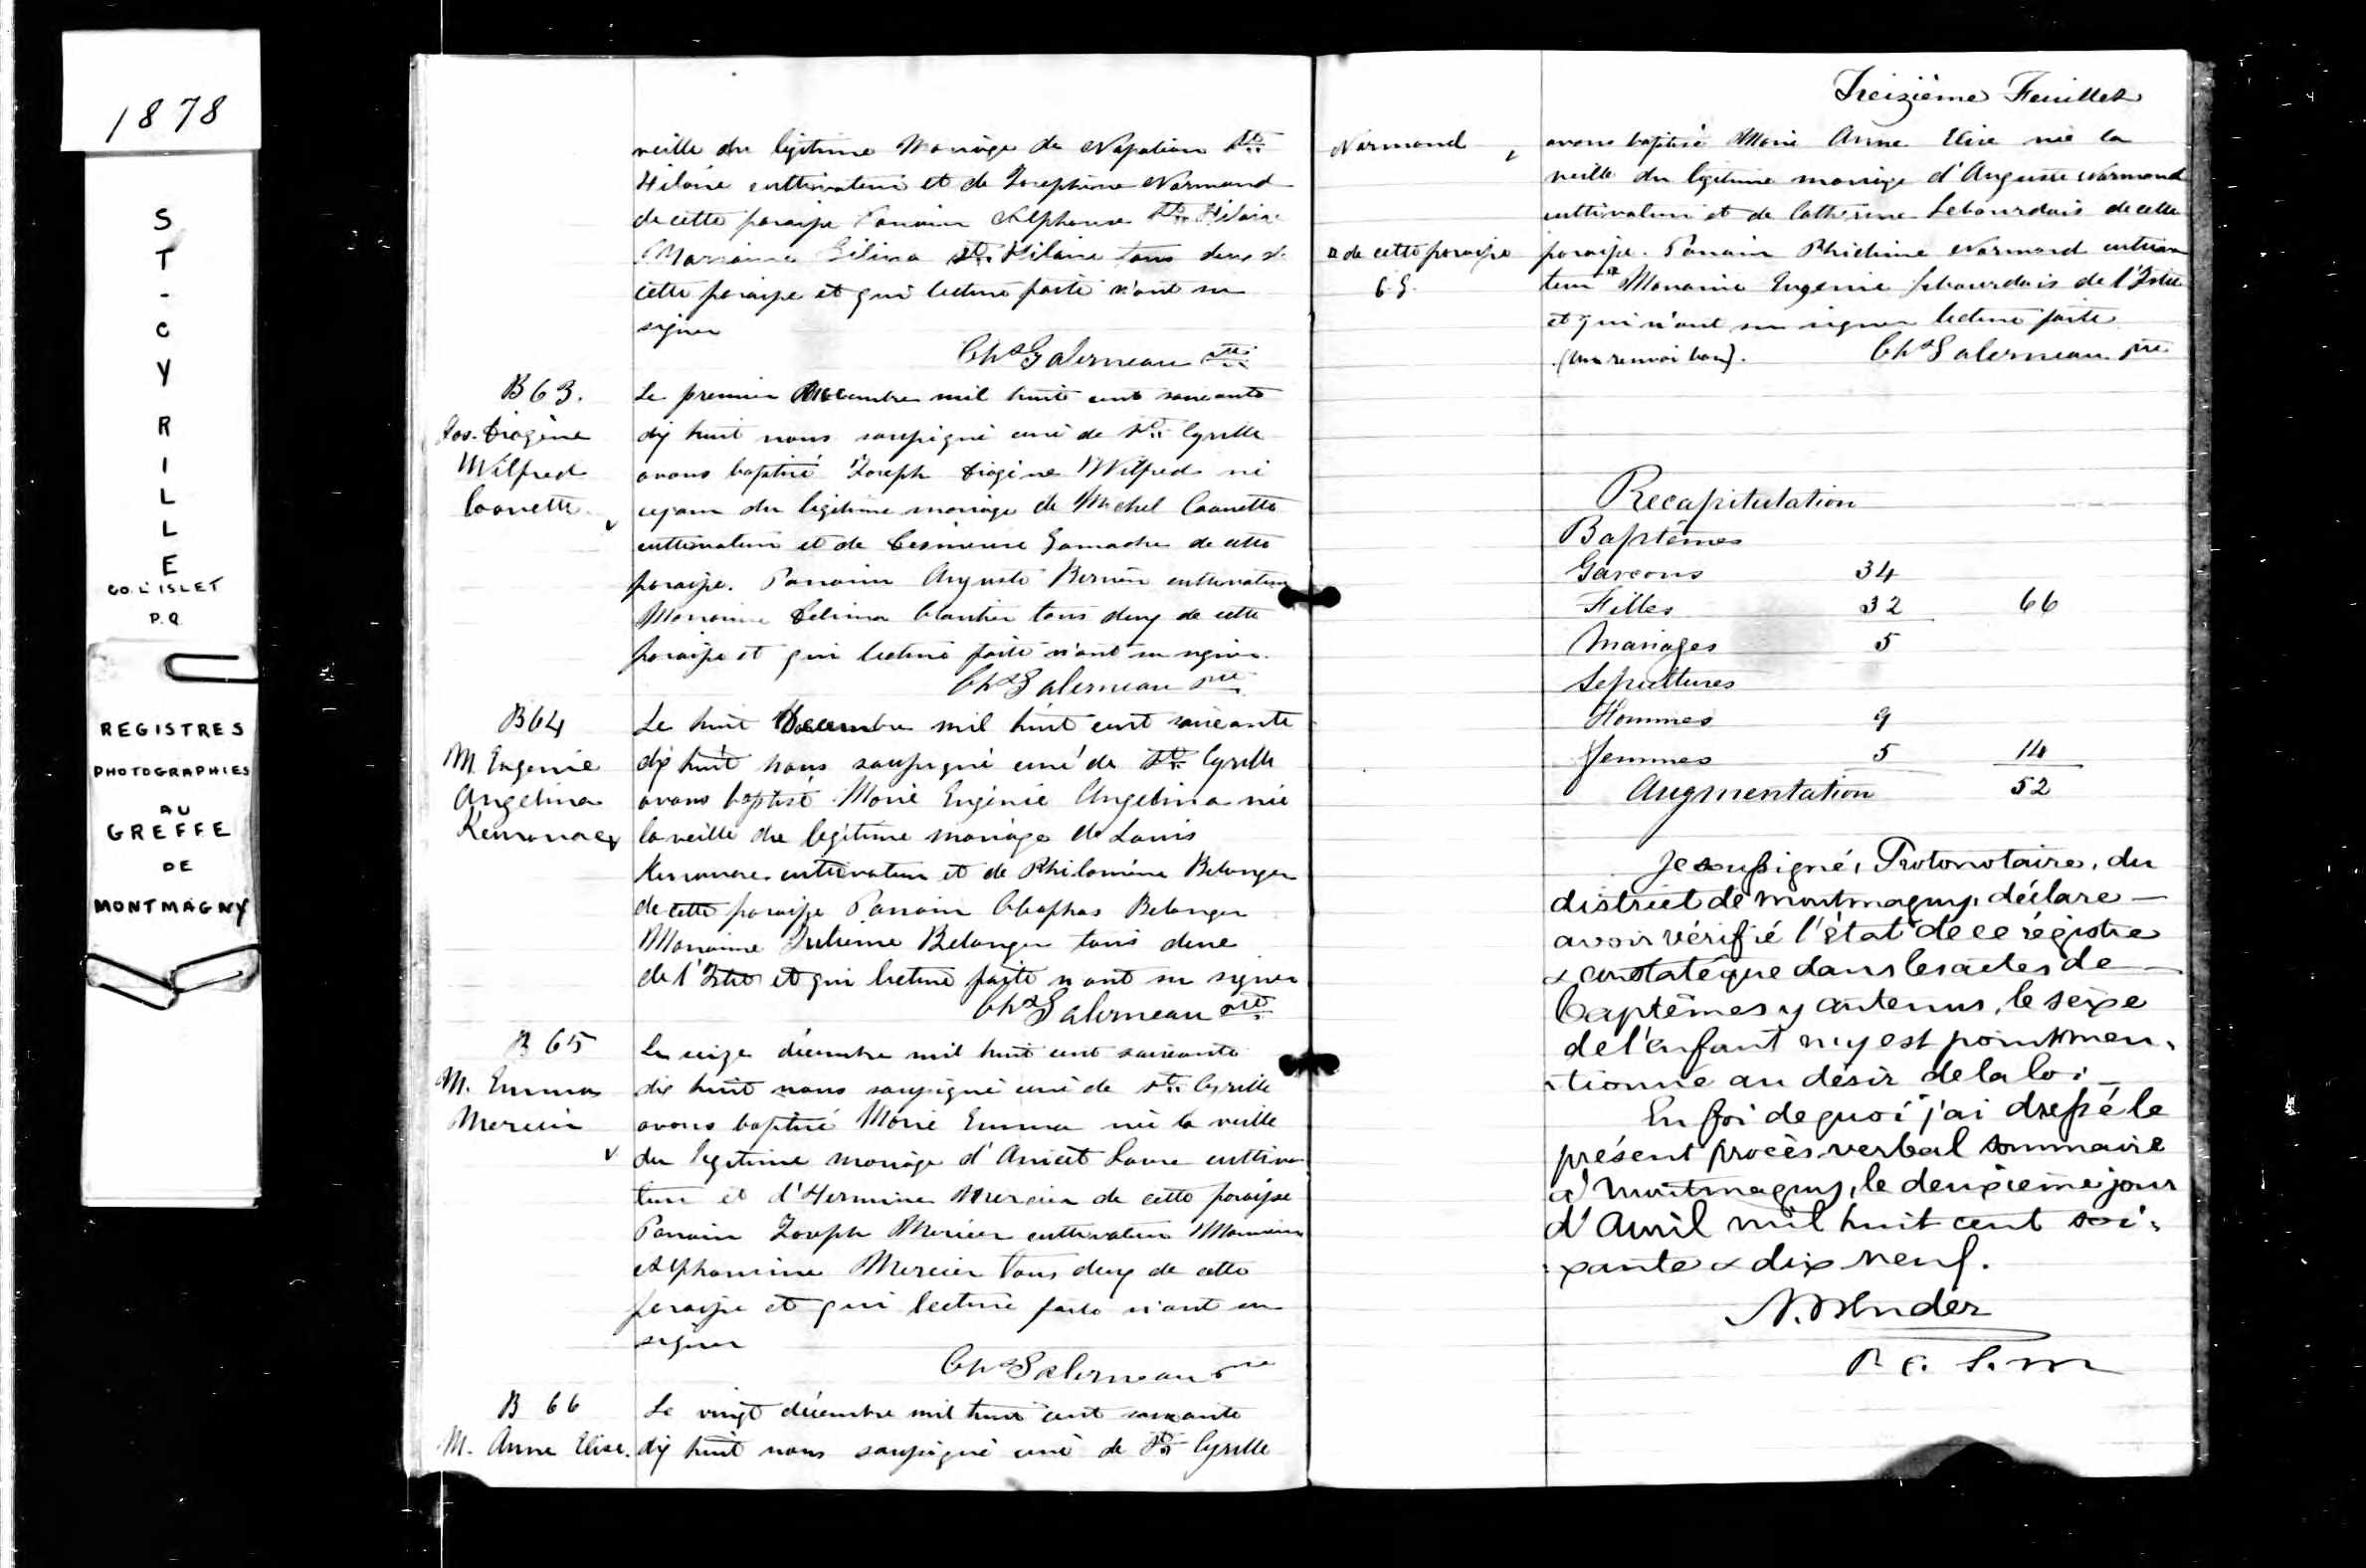 1878
ST-CYRILLE
CO. L'ISLET
P.Q.
REGISTRES
PHOTOGRAPHIES
AU
GREFFE
DE
MONTMAGNY
veille du légitime mariage de Napoléon St.
Hilaire cultivateur et de Josephine Normand
de cette paroisse Parrain Alphonse St. Hilaire
Marraine St. Hilaire tous deux de
cette paroisse et qui lecture faite n'ont su
signer
Chs Galerneau ptre
B 63.
Jos. Diogène
Wilfred
Caouette
Le premier Decembre mil huit cent soixante
dix huit nous soussigné curé de St. Cyrille
avons baptisé Joseph Diogène Wilfred né
ce jour du légitime mariage de Michel Caouette
cultivateur et de Gamache de cette
paroisse. Parrain Auguste Bernier cultivateur
Marraine Celina Cloutier tous deux de cette
paroisse et qui lecture faite n'ont su signer.
Chs Galerneau ptre
B 64
M. Eugenie
Angelina
Kerouac
Le huit Decembre mil huit cent soixante
dix huit nous soussigné curé de St. Cyrille
avons baptisé Marie Eugénie Angelina née
la veille du légitime mariage de Louis
Kerouac cultivateur et de Philomène Belanger
de cette paroisse Parrain Cleophas Belanger
Marraine Julienne Belanger tous deux
de l'Islet et qui lecture faite n'ont su signer
Chs Galerneau ptre
B 65
M. Emma
Mercier
Le seize décembre mil huit cent soixante
dix huit nous soussigné curé de St. Cyrille
avons baptisé Marie Emma née la veille
du légitime mariage d'Anicet cultiva
teur et d'Hermine Mercier de cette paroisse
Parrain Joseph Mercier cultivateur Marraine
Alphonsine Mercier tous deux de cette
paroisse et qui lecture faite n'ont su
signer
Chs Galerneau ptre
B 66
M. Anne Elise
Le vingt décembre mil huit cent soixante
dix huit nous soussigné curé de St. Cyrille
Treizième Feuillet
Normand
avons baptisé Marie Anne Elise née la
veille du légitime mariage d'Auguste Normand
cultivateur et de Catherine Lebourdais de cette
paroisse. Parrain Normand cultiva
teur Marraine Eugenie Lebourdais de l'Islet
et qui n'ont su signer lecture faite
de cette paroisse
C. G.
(Un renvoi bon).
Chs Galerneau ptre
Recapitulation
Baptêmes
Garcons 34
Filles 32 66
Mariages 5
Sepultures
Hommes 9
Femmes 5 14
Augmentation 52
Je soussigné, Protonotaire, du
district de Montmagny, déclare
avoir vérifié l'état de ce régistre
& constaté que dans les actes de
baptêmes y contenus, le sexe
de l'enfant n'y est point men-
tionné au désir de la loi
En foi de quoi j'ai dressé le
présent procès verbal sommaire
à Montmagny, le deuxième jour
d'Avril mil huit cent soi-
xante & dix neuf.
P. C. S. M